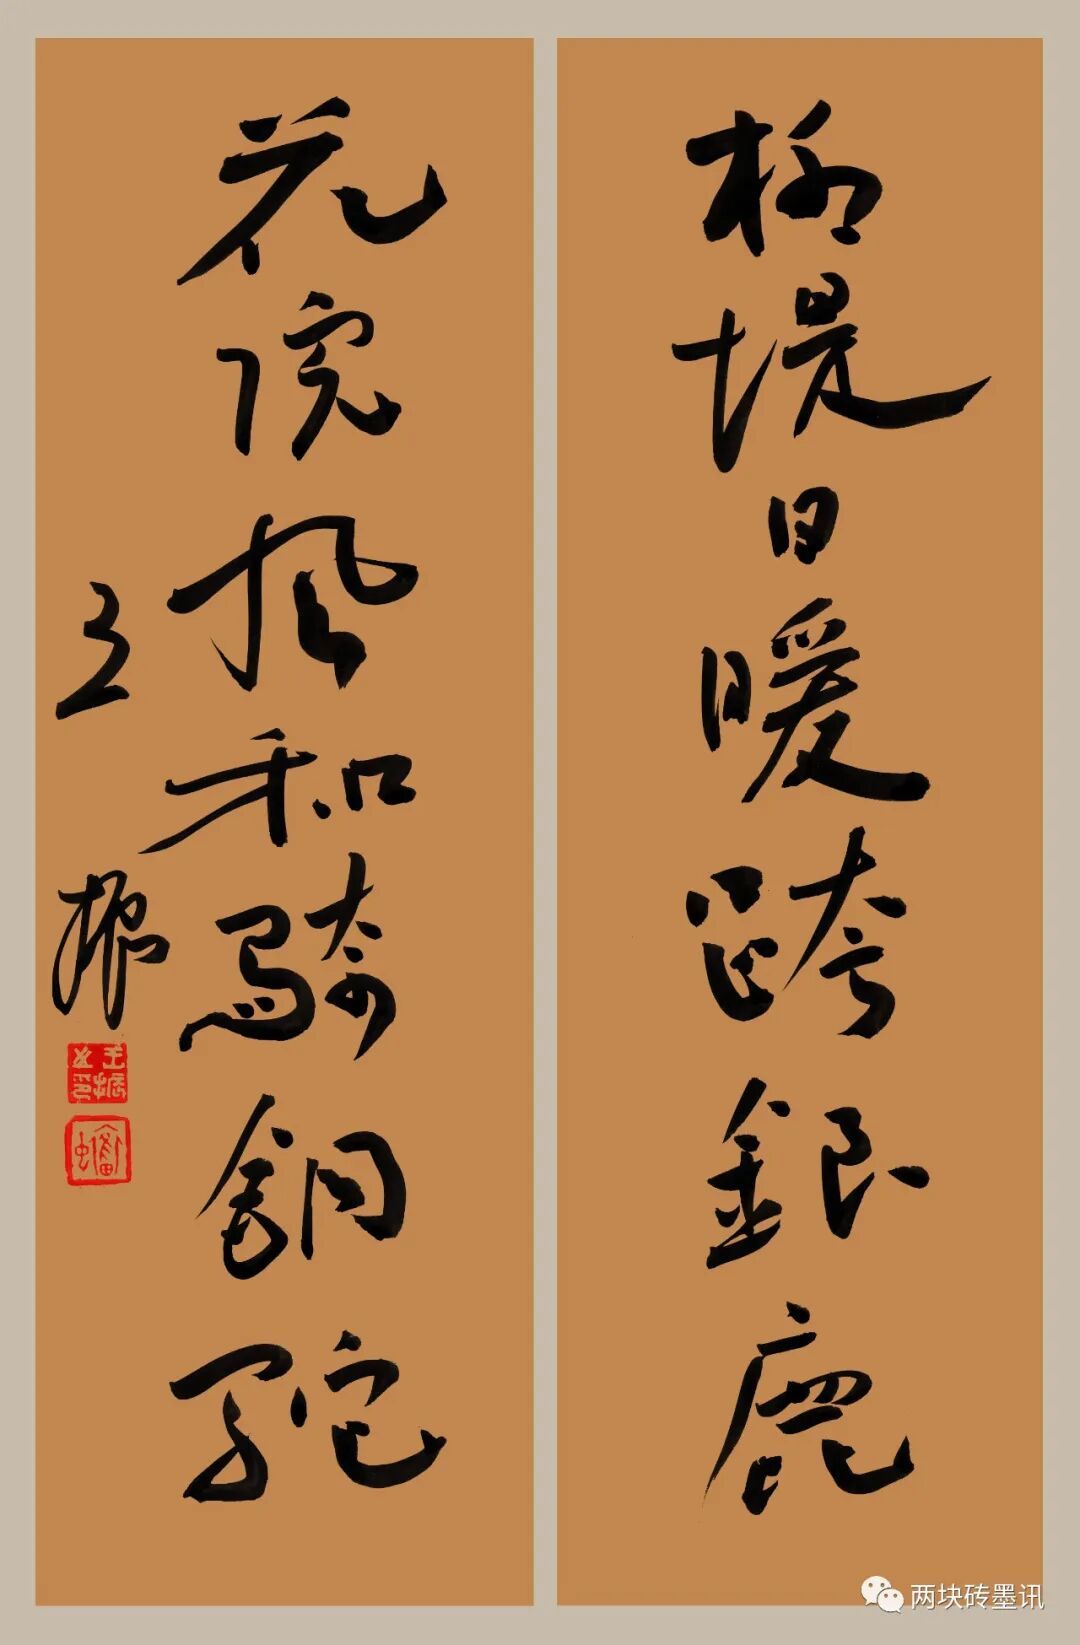 柳堤日暖跨銀鹿
花院風和騎銅駝
王振
王振之印
两块砖墨讯